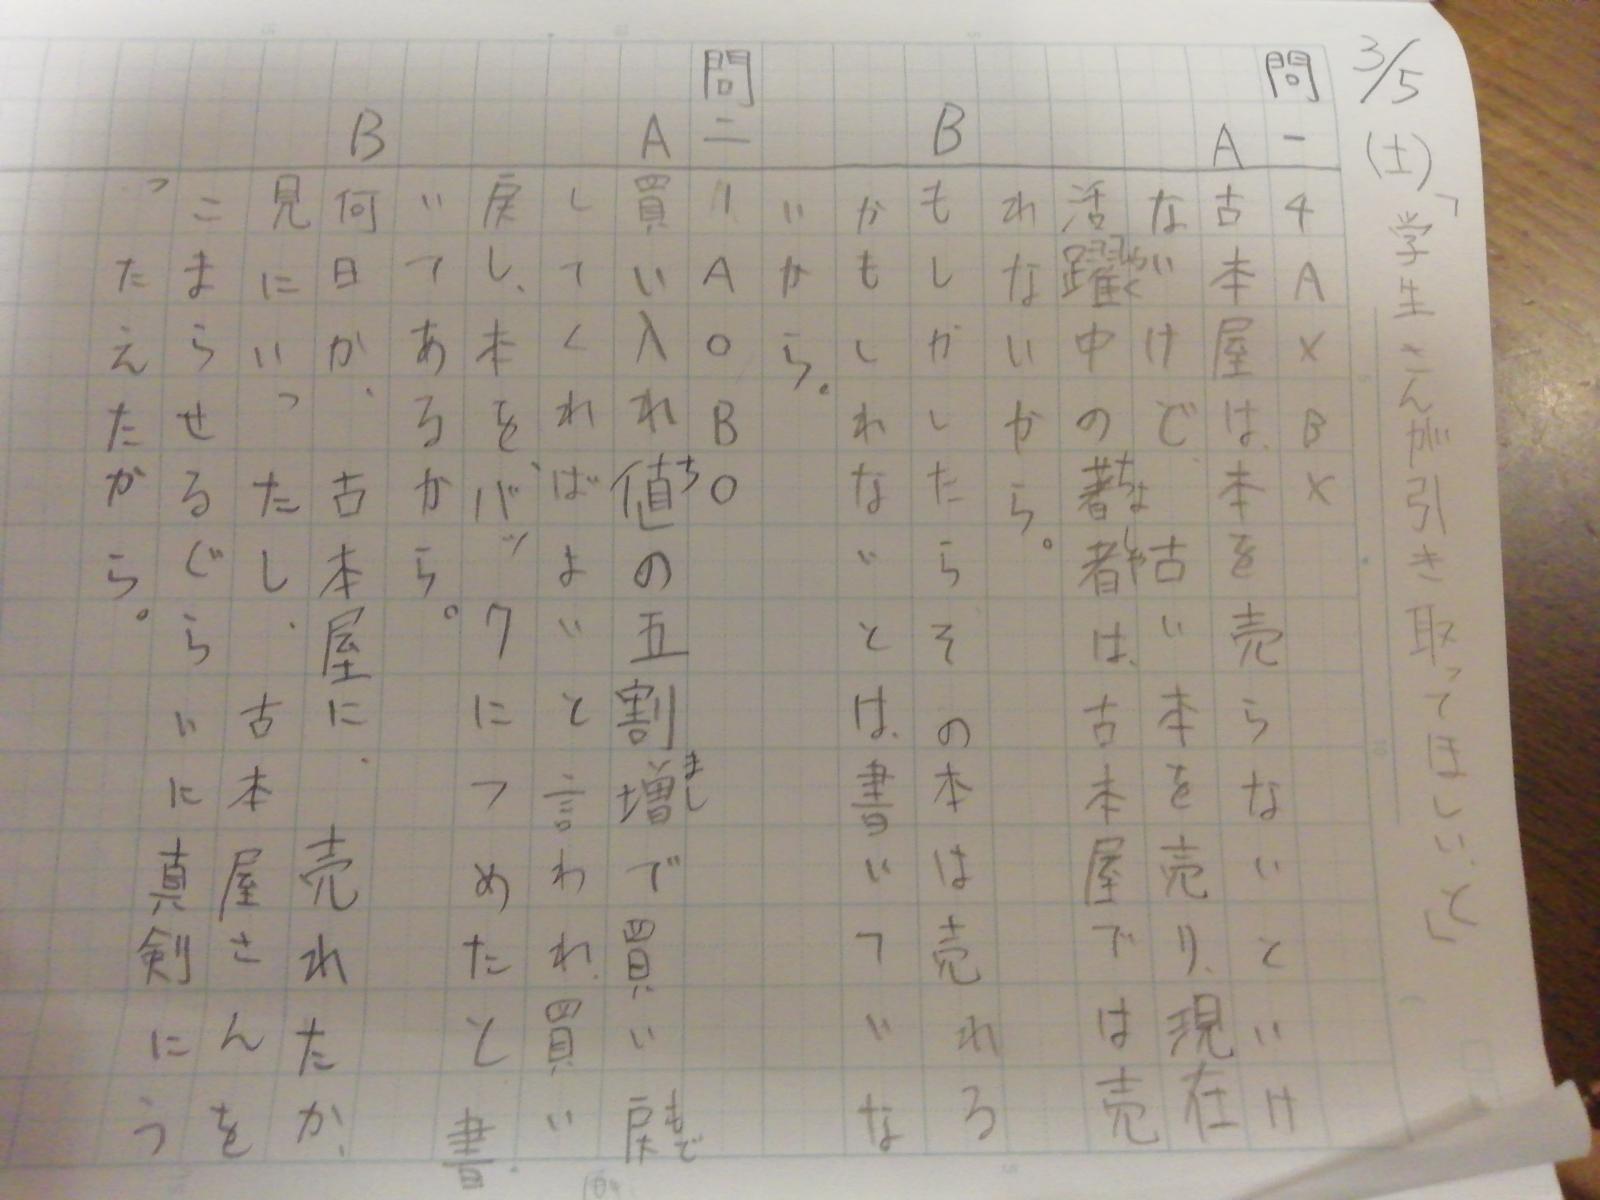 3/5(土)「学生さんが引き取ってほしい、と」
問一 4 A× B×
A 古本屋は、本を売らないといけ
ないけど、古い本を売り、現在
活躍中の著者は、古本屋では売
れないから。
B もしかしたらその本は売れる
かもしれないとは、書いていな
いから。
問二 1 A○ B○
A 買い入れ値の五割増で買い戻
してくれればよいと言われ、買い
戻し、本を、バックにつめたと書
いてあるから。
B 何日か、古本屋に、売れたか、
見にいったし、古本屋さんを
こまらせるぐらいに真剣にう
ったえたから。